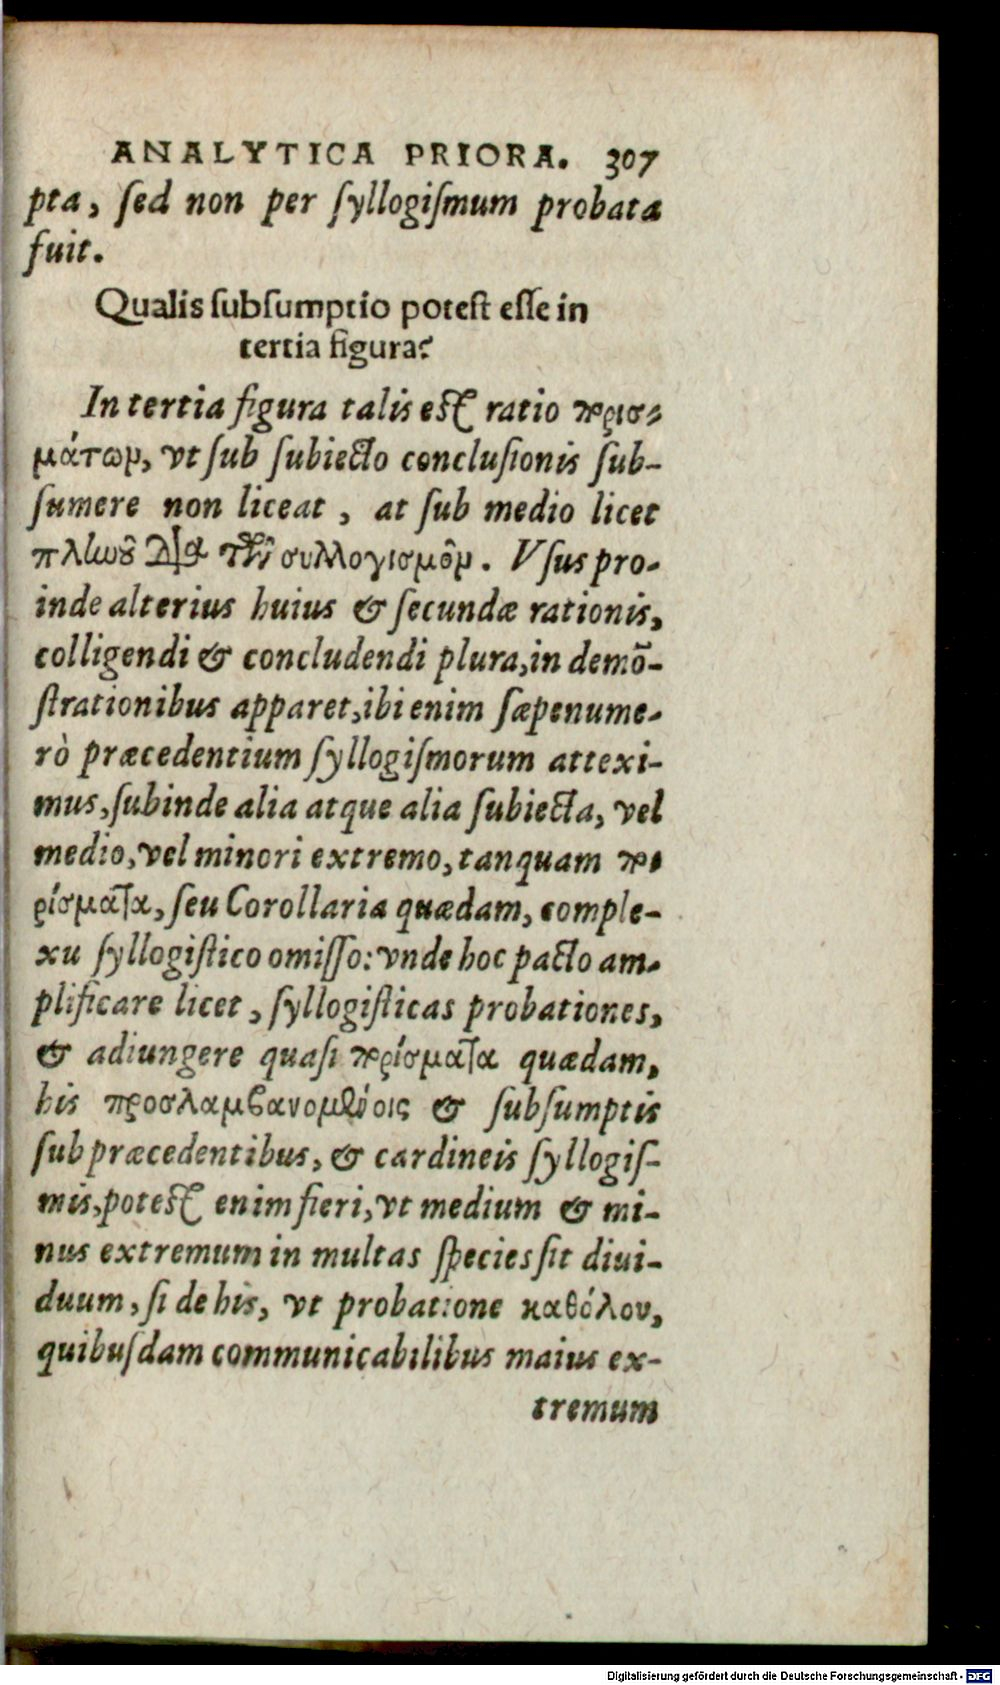 ANALYTICA PRIORA. 307
pta, sed non per syllogismum probata
fuit.
Qualis subsumptio potest esse in
tertia figura?
In tertia figura talis est ratio πορισ-
μάτων, vt sub subiecto conclusionis sub-
sumere non liceat, at sub medio licet
πλὴν οὐ διὰ τὸν συλλογισμὸν. Vsus pro-
inde alterius huius & secundæ rationis,
colligendi & concludendi plura, in demõ-
strationibus apparet, ibi enim sæpenume-
rò præcedentium syllogismorum attexi-
mus, subinde alia atque alia subiecta, vel
medio, vel minori extremo, tanquam πο
ρίσματα, seu Corollaria quædam, comple-
xu syllogistico omisso: vnde hoc pacto am-
plificare licet, syllogisticas probationes,
& adiungere quasi πορίσματα quædam,
his προσλαμβανομένοις & subsumptis
sub præcedentibus, & cardineis syllogis-
mis, potest enim fieri, vt medium & mi-
nus extremum in multas species sit diui-
duum, si de his, vt probatione καθόλου,
quibusdam communicabilibus maius ex-
tremum
Digitalisierung gefördert durch die Deutsche Forschungsgemeinschaft - DFG